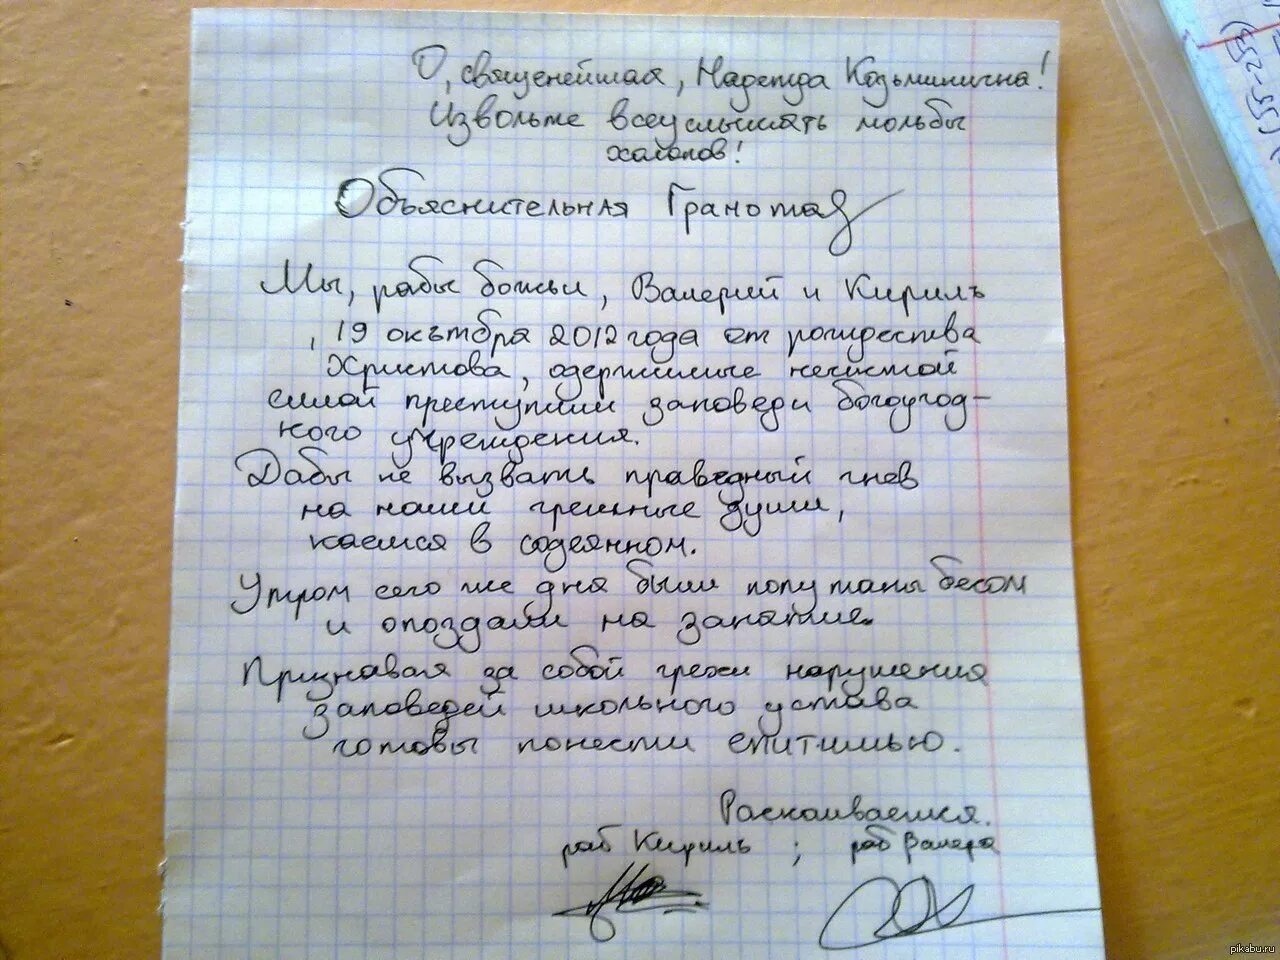 О, священейшая, Надежда Козьминична!
Извольте всеуслышать мольбы
холопов!
Объяснительная Грамота
Мы, рабы божьи, Валерий и Кириль
, 19 окътбра 2012 года от рождества
Христова, одержимые нечистой
силой преступили заповеди богоугод-
ного учреждения.
Дабы не вызвать праведный гнев
на наши грешные души,
каемся в содеянном.
Утром сего же дня были попутаны бесом
и опоздали на занятие.
Признавая за собой грехи нарушения
заповедей школьного устава
готовы понести епитимью.
Раскаиваемся.
раб Кириль ; раб Валера
pikabu.ru